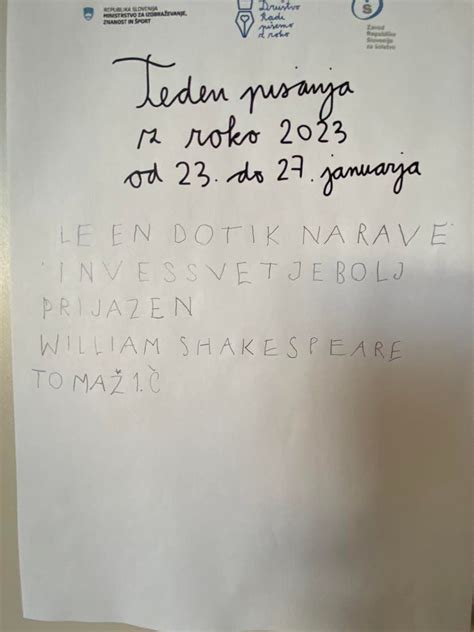 REPUBLIKA SLOVENIJA
MINISTRSTVO ZA IZOBRAŽEVANJE,
ZNANOST IN ŠPORT
Društvo
Radi
pišemo
z roko
Zavod
Republike
Slovenije
za šolstvo
Teden pisanja
z roko 2023
od 23. do 27. januarja
LE EN DOTIK NARAVE
IN VES SVET JE BOLJ
PRIJAZEN
WILLIAM SHAKESPEARE
TOMAŽ 1. Č